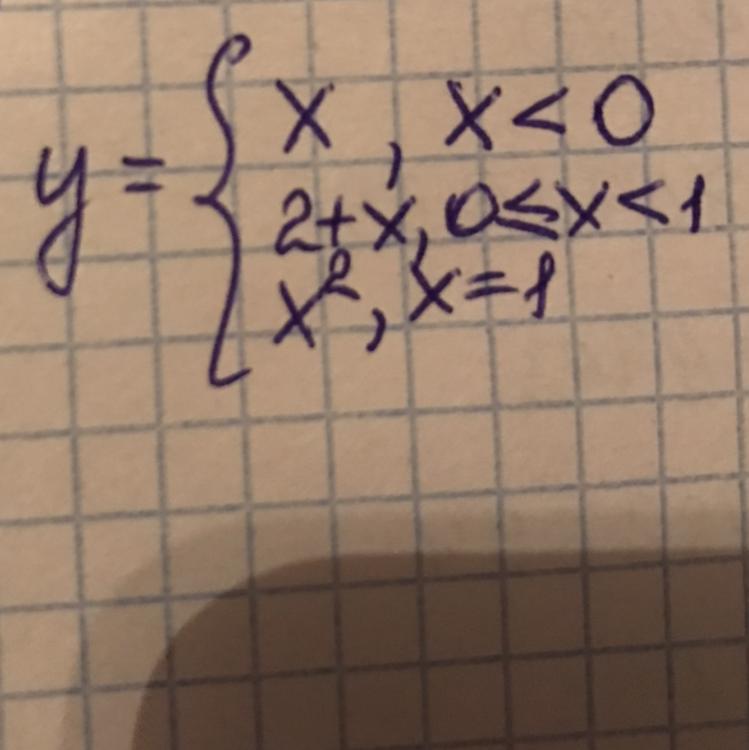 y = { x , x < 0
2 + x, 0 ≤ x < 1
x², x = 1